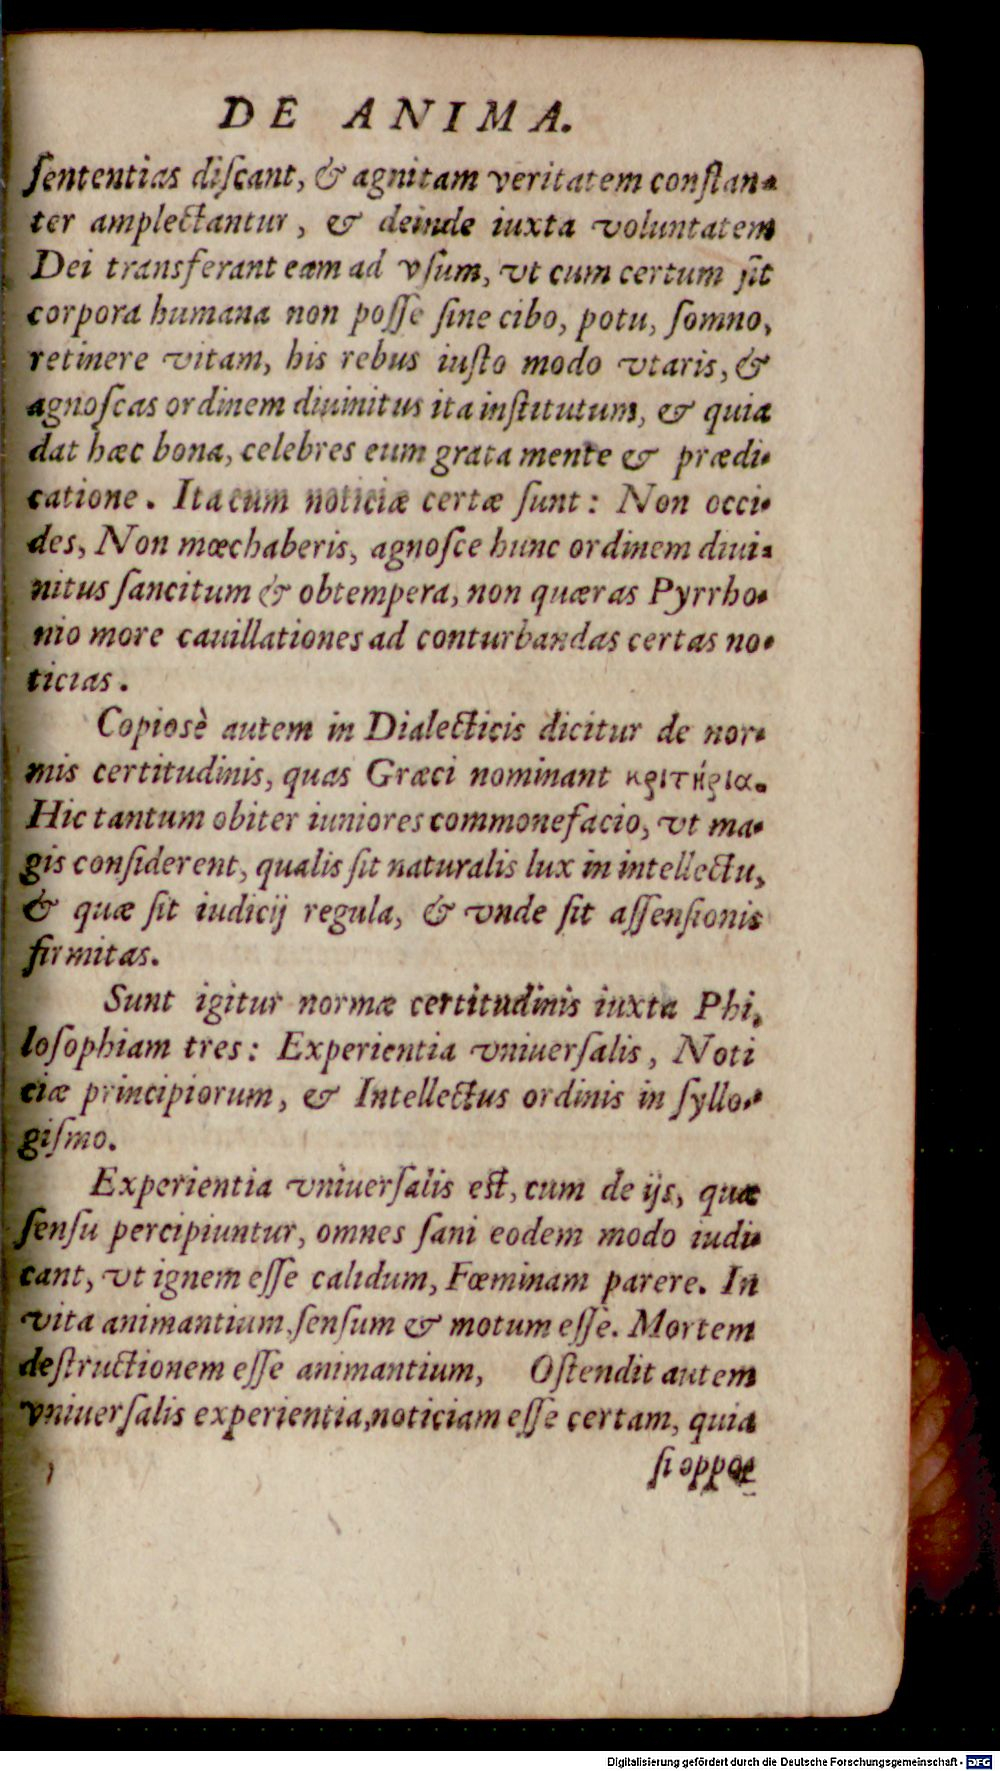 DE ANIMA.
ſententias diſcant, & agnitam veritatem conſtan-
ter amplectantur, & deinde iuxta voluntatem
Dei transferant eam ad vſum, vt cum certum ſit
corpora humana non poſſe ſine cibo, potu, ſomno,
retinere vitam, his rebus iuſto modo vtaris, &
agnoſcas ordinem diuinitus ita inſtitutum, & quia
dat hæc bona, celebres eum grata mente & prædi-
catione. Ita cum noticiæ certæ ſunt: Non occi-
des, Non mœchaberis, agnoſce hunc ordinem diui-
nitus ſancitum & obtempera, non quæras Pyrrho-
nio more cauillationes ad conturbandas certas no-
ticias.
Copiosè autem in Dialecticis dicitur de nor-
mis certitudinis, quas Græci nominant κριτήρια.
Hic tantum obiter iuniores commonefacio, vt ma-
gis conſiderent, qualis ſit naturalis lux in intellectu,
& quæ ſit iudicij regula, & vnde ſit aſſenſionis
firmitas.
Sunt igitur normæ certitudinis iuxta Phi,
loſophiam tres: Experientia vniuerſalis, Noti
ciæ principiorum, & Intellectus ordinis in ſyllo-
giſmo.
Experientia vniuerſalis eſt, cum de ijs, quæ
ſenſu percipiuntur, omnes ſani eodem modo iudi-
cant, vt ignem eſſe calidum, Fœminam parere. In
vita animantium, ſenſum & motum eſſe. Mortem
deſtructionem eſſe animantium, Oſtendit autem
vniuerſalis experientia, noticiam eſſe certam, quia
Digitalisierung gefördert durch die Deutsche Forschungsgemeinschaft - DFG